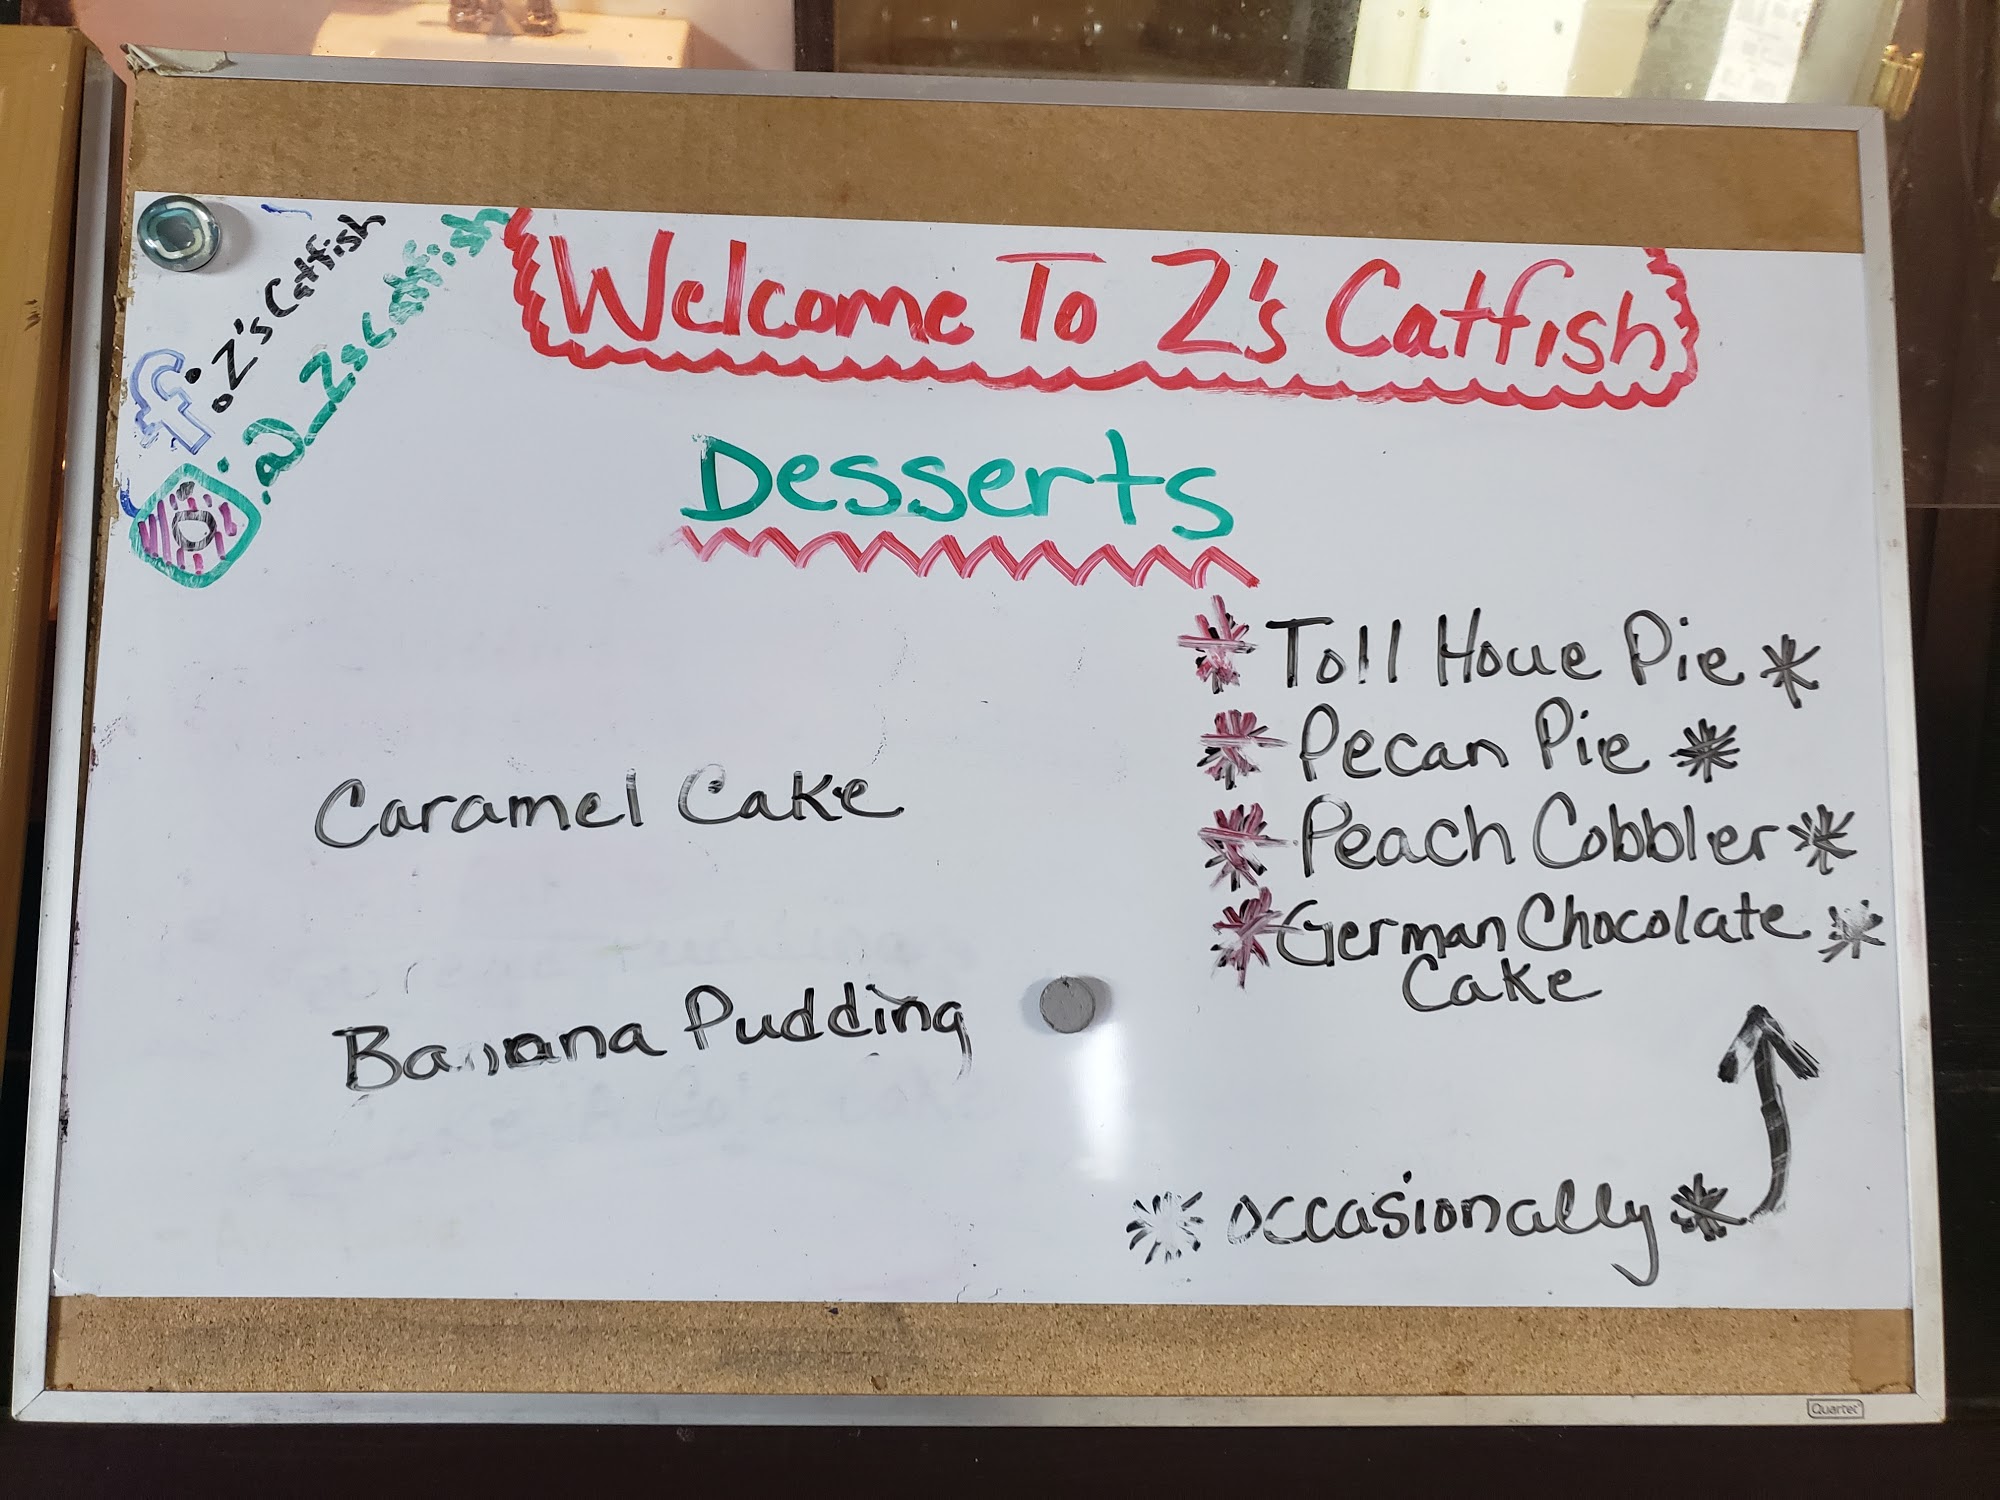 : Z's Catfish
: @_Zscatfish
Welcome To Z's Catfish
Desserts
Caramel Cake
Banana Pudding
* Toll Houe Pie *
* Pecan Pie *
* Peach Cobbler *
* German Chocolate *
Cake
* occasionally *
Quartet